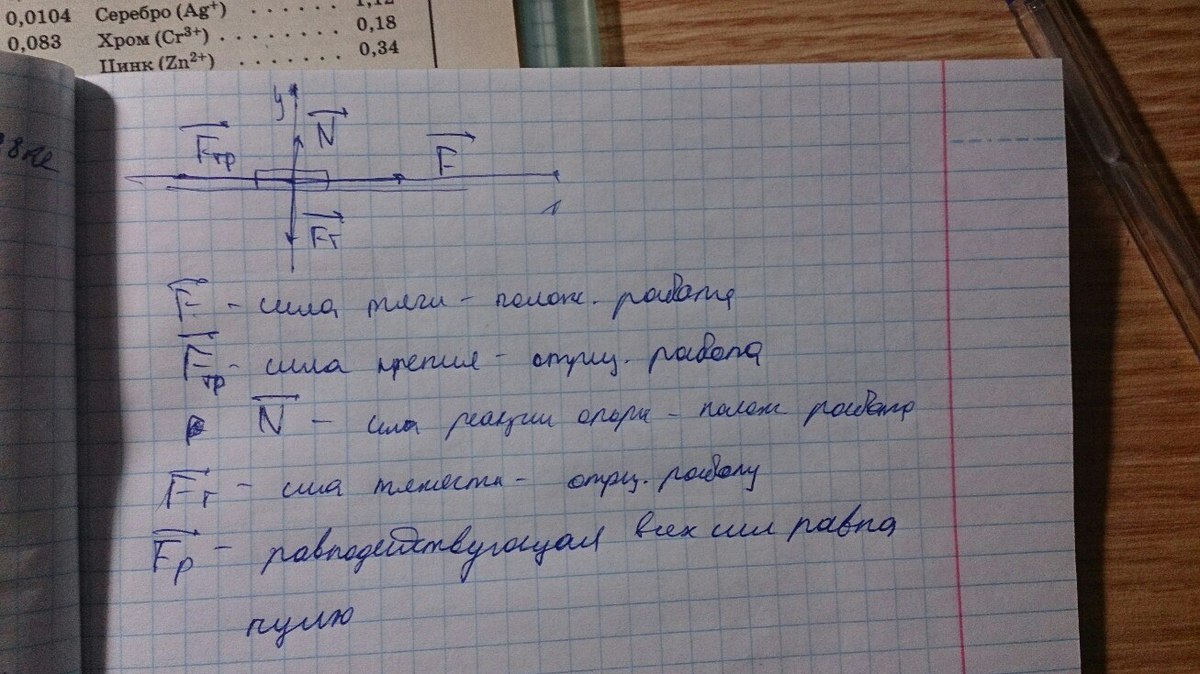 0,0104 Серебро (Ag⁺) . . . . . . 1,12
0,083 Хром (Cr³⁺) . . . . . . . . 0,18
Цинк (Zn²⁺) . . . . . . . 0,34
y
N
Fтр
F
Fт
F - сила тяги - полож. работа
Fтр - сила трения - отриц. работа
N - сила реакции опоры - полож работа
Fт - сила тяжести - отриц. работу
Fр - равнодействующая всех сил равна
нулю